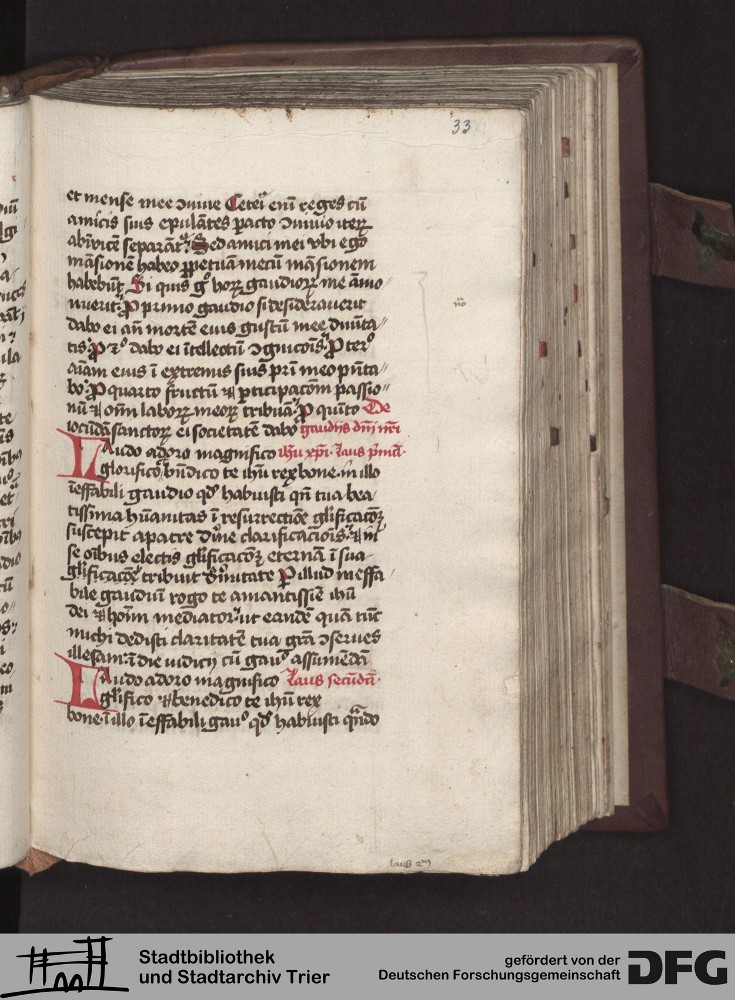 33
et mense mee ꝯuiue Ceteri eni reges cū
amicis suis epulātes pacto ꝯuiuio iterꝝ
abīuicē separāt᷑ Sed amici mei vbi ego
māsionē habeo ꝑpetuā mecū māsionem
habebūt Si quis gͦ horꝝ gaudiorꝝ me āmo
nuerit ꝓ primo gaudio si desiderauerit
dabo ei an̄ mortē eius gustū mee diuīta
tis ꝓ 2º dabo ei ītellectū ꝯgnicōis ꝓ tercͦ
aīam eius ī extremis suis pr̄i meo pn̄ta
bo ꝓ quarto fructū ⁊ ꝑticipacōm passio
nū ⁊ oīm laborꝝ meorꝝ tribuā ꝓ quīto De
iocūdā sanctorꝝ ei societatē dabo gaudijs dn̄i nr̄i
Laudo adoro magnifico ihu xp̄i laus pͥma
glorifico bn̄dico te ihū rex bone in illo
īeffabili gaudio qd̓ habuisti qn̄ tua bea
tissima hūanitas ī resurrectiōe glīficacōꝫ
suscepit a patre diͥne clarificacōis ⁊ in
se oībus electis glīficacōꝫ eternā ī sua
glīficacōe tribuit diͥnitate ꝓ illud ineffa
bile gaudiū rogo te amantissīe ihū
dei ⁊ hoīm mediator ut eandē quā tūc
michi dedisti claritatē tua gr̄a ꝯserues
illesam ī die iudicij cū gauͦ assumēdā
Laudo adoro magnifico Laus secūdū
glīfico ⁊ benedico te ihū rex
bone ī illo īeffabili gauͦ qd̓ habuisti qn̄do
laus 2ᵐ
Stadtbibliothek
und Stadtarchiv Trier
gefördert von der
Deutschen Forschungsgemeinschaft
DFG